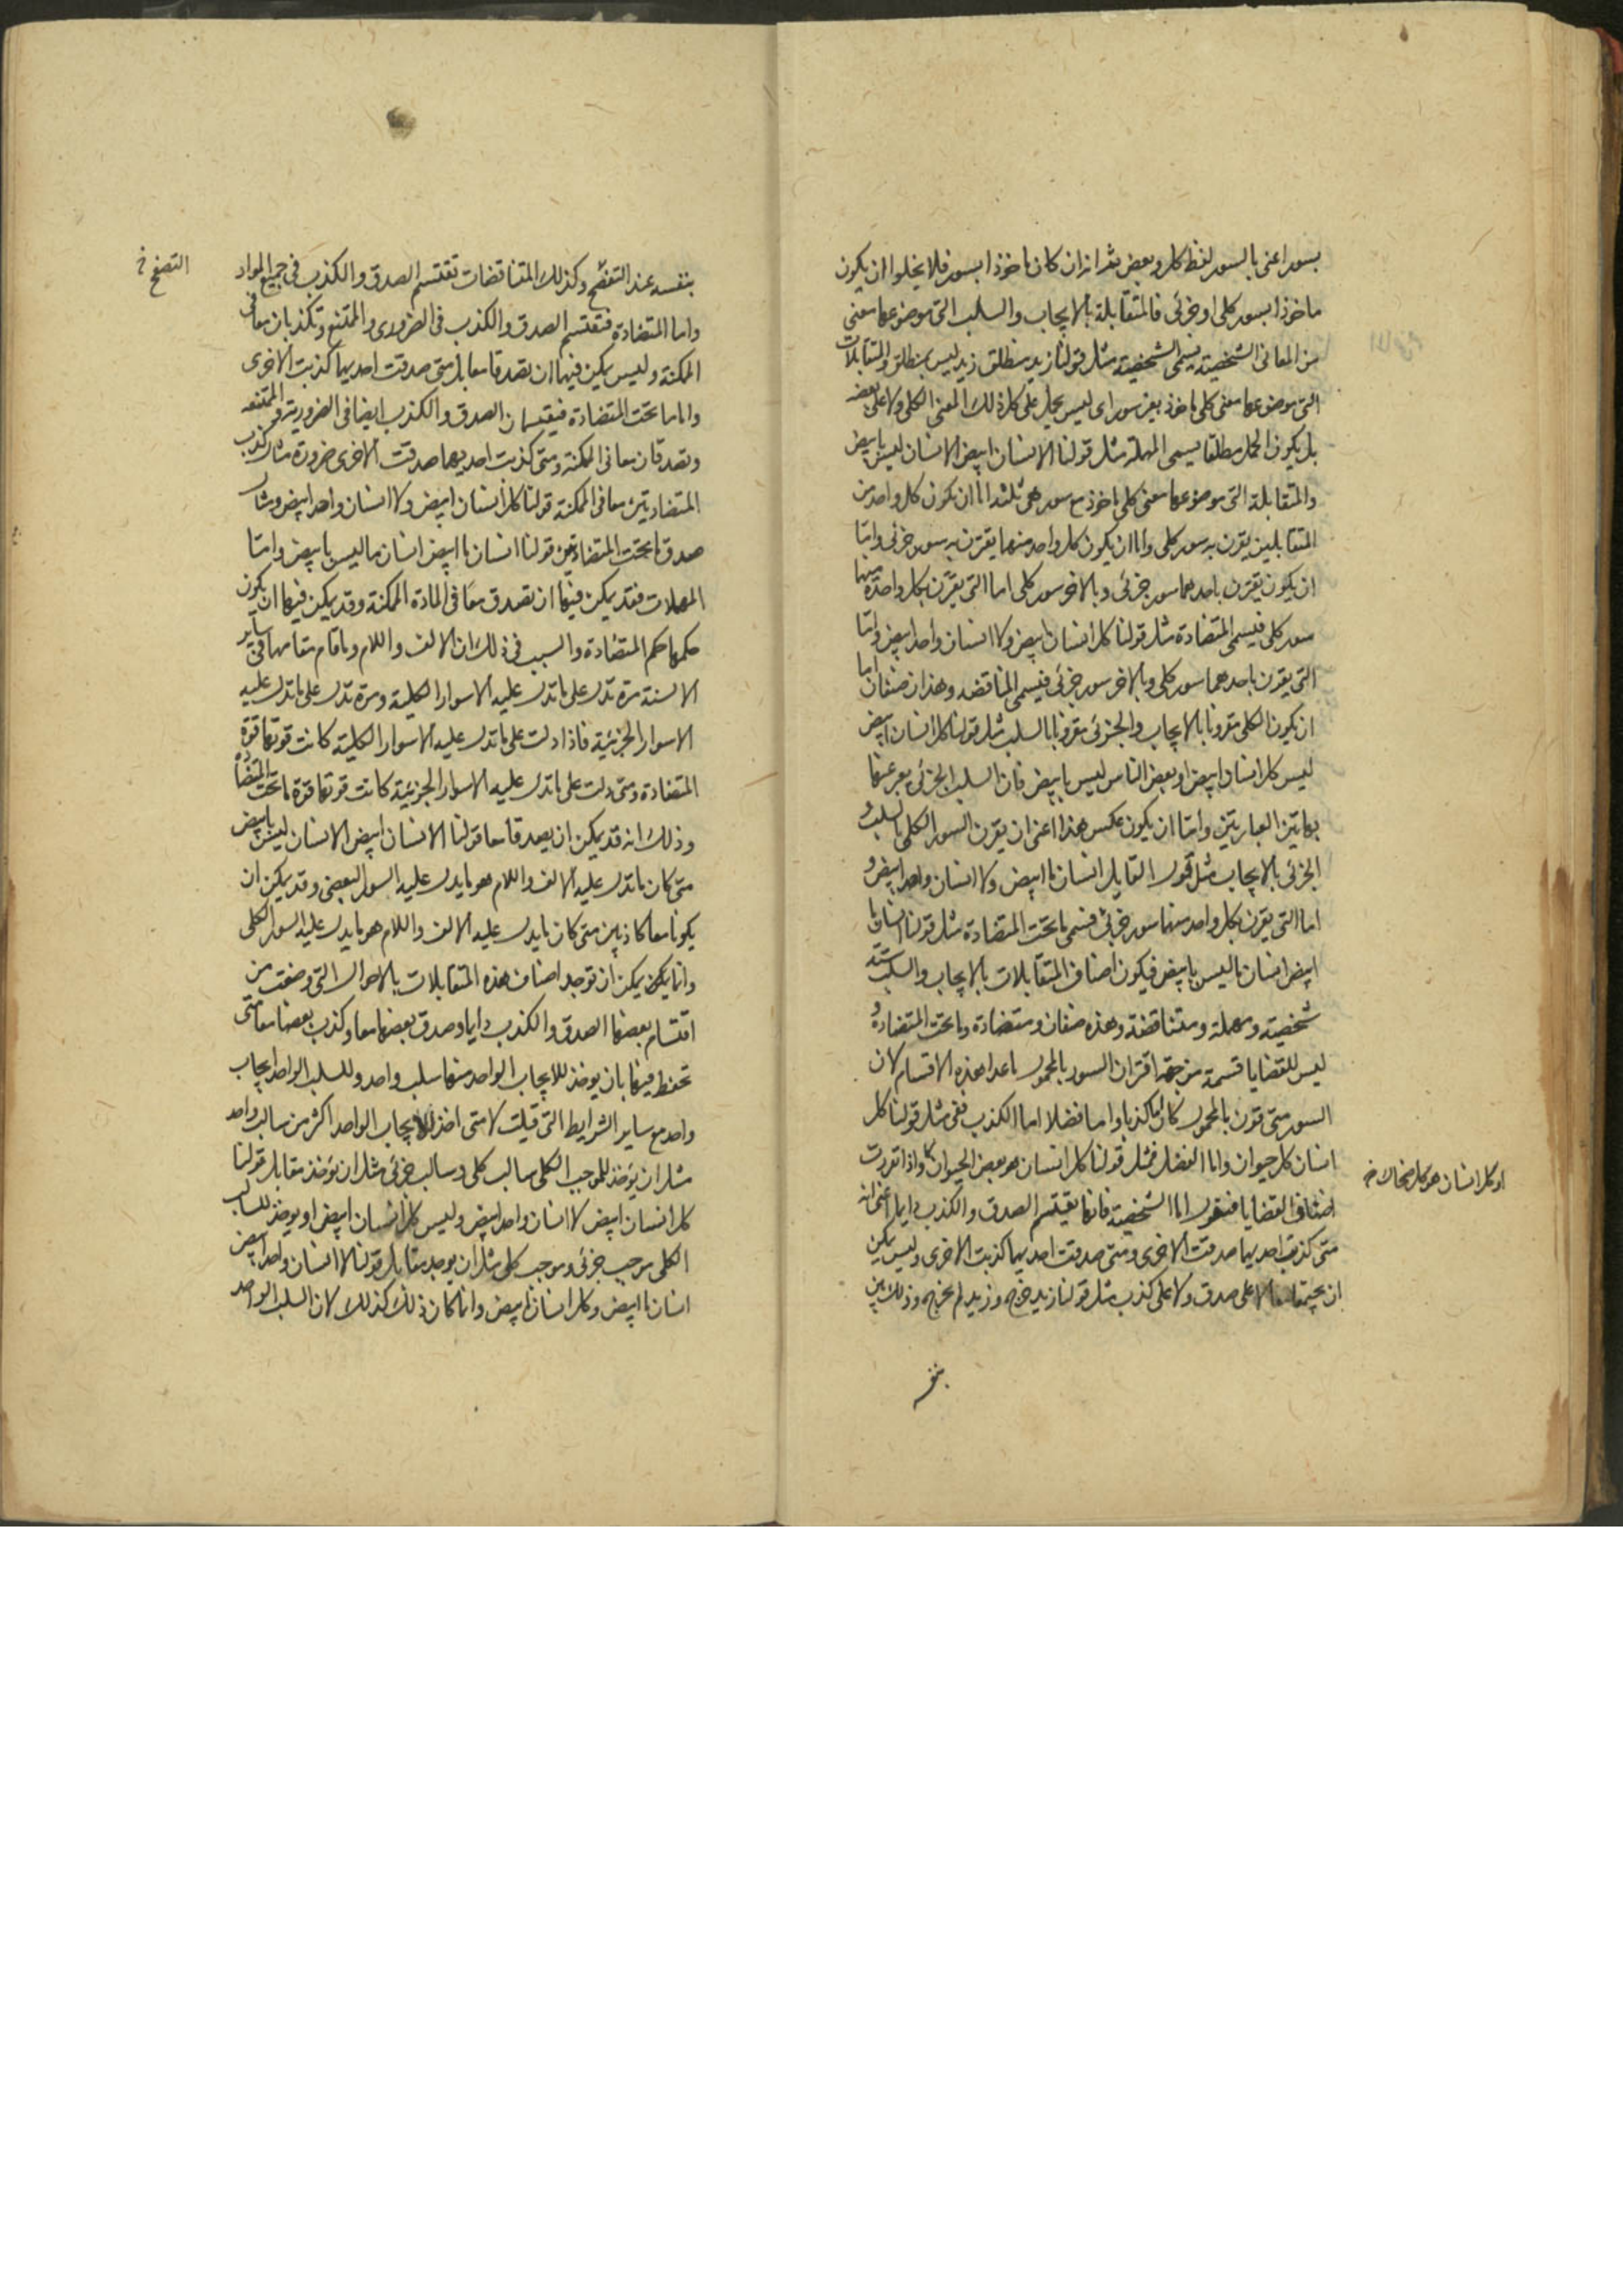 بسور اعنى بالسور لفظ كل وبعض ثم ان كان ماخوذا بسور فلا يخلوا ان يكون
ماخوذا بسور كلى او جزئى فالمتقابلة بالايجاب والسلب التى موضوعها معنى
من المعانى الشخصية يسمى الشخصية مثل قولنا زيد منطلق زيد ليس بمنطلق والمتقابلات
التى موضوعها معنى كلى ماخوذ بغير سور اى ليس يحمل على كل ذلك المعنى الكلى ولا على بعضه
بل يكون الحمل مطلقا يسمى المهملة مثل قولنا الانسان ابيض الانسان ليس بابيض
والمتقابلة التى موضوعها معنى كلى ماخوذ مع سور هى ثلثة اما ان يكون كل واحد من
المتقابلين يقرن به سور كلى واما ان يكون كل واحد منهما يقترن به سور جزئى واما
ان يكون يقترن باحدهما سور جزئى وبالاخر سور كلى اما التى يقترن بكل واحدة منها
سور كلى فيسمى المتضادة مثل قولنا كل انسان ابيض ولا انسان واحد ابيض واما
التى يقرن باحدهما سور كلى وبالاخر سور جزئى فيسمى المناقضه وهذان صنفان اما
ان يكون الكلى مقرونا بالايجاب والجزئى مقرونا بالسلب مثل قولنا كل انسان ابيض
ليس كل انسان ابيض او بعض الناس ليس بابيض فان السلب الجزئى يعبر عنها
بهاتين العبارتين واما ان يكون عكس هذا اعنى ان يقرن السور الكلى بالسلب و
الجزئى بالايجاب مثل قول القايل انسان ما ابيض ولا انسان واحد ابيض و
اما التى يقرن بكل واحد منهما سور جزئى فتسمى ما تحت المتضادة مثل قولنا انسان ما
ابيض انسان ما ليس بابيض فيكون اصناف المتقابلات بالايجاب والسلب ستة
شخصية ومهملة ومتناقضة وهذه صنفان ومتضادة وما تحت المتضادة و
ليس للقضايا قسمة من جهة اقتران السور بالمحمول ما عدا هذه الاقسام لان
السور متى قرن بالمحمول كان اما كذبا واما فضلا اما الكذب ففى مثل قولنا كل
انسان كل حيوان واما الفضل فمثل قولنا كل انسان هو بعض الحيوان واذا تقررت
او كل انسان هو كل ضحاك خ
اصناف القضايا فنقول اما الشخصية فانها يقتسم الصدق والكذب دايما اعنى انه
متى كذبت احديهما صدقت الاخرى ومتى صدقت احديهما كذبت الاخرى وليس يمكن
ان يجتمعا معا لا على صدق ولا على كذب مثل قولنا زيد خرج وزيد لم يخرج وذلك بين
بنفسه
بنفسه عند التصفح وكذلك المتناقضات تقتسم الصدق والكذب فى جميع المواد
التصفح خ
واما المتضادة فتقتسم الصدق والكذب فى الضرورى والممتنع وتكذبان معا فى
الممكنة وليس يمكن فيهما ان تصدقا معا بل متى صدقت احديهما كذبت الاخرى
واما ما تحت المتضادة فيقتسمان الصدق والكذب ايضا فى الضرورية والممتنعه
وتصدقان معا فى الممكنة ومتى كذبت احديهما صدقت الاخرى ضرورة مثال كذب
المتضادتين معا فى الممكنة قولنا كل انسان ابيض ولا انسان واحد ابيض ومثال
صدق ما تحت المتضادتين قولنا انسان ما ابيض انسان ما ليس بابيض واما
المهملات فقد يمكن فيهما ان تصدق معا فى المادة الممكنة وقد يمكن فيهما ان يكون
حكمها حكم المتضادة والسبب فى ذلك ان الالف واللام وما قام مقامهما فى ساير
الالسنة مرة تدل على ما تدل عليه الاسوار الكلية ومرة تدل على ما تدل عليه
الاسوار الجزئية فاذا دلت على ما تدل عليه الاسوار الكلية كانت قوتها قوة
المتضادة ومتى دلت على ما تدل عليه الاسوار الجزئية كانت قوتها قوة ما تحت المتضادة
وذلك انه قد يمكن ان يصدقا معا قولنا الانسان ابيض الانسان ليس بابيض
متى كان ما تدل عليه الالف واللام هو ما يدل عليه السور البعضى وقد يمكن ان
يكونا معا كاذبين متى كان ما يدل عليه الالف واللام هو ما يدل عليه السور الكلى
وانما يمكن ان توجد اصناف هذه المتقابلات بالاحوال التى وضعت من
اقتسام بعضها الصدق والكذب دايما وصدق بعضها معا وكذب بعضها معا متى
تحفظ فيها بان يوخذ للايجاب الواحد منها سلب واحد وللسلب الواحد ايجاب
واحد مع ساير الشرايط التى قيلت لا متى اخذ للايجاب الواحد اكثر من سالب واحد
مثل ان يوخذ للموجب الكلى سالب كلى وسالب جزئى مثل ان يوخذ مقابل قولنا
كل انسان ابيض لا انسان واحد ابيض وليس كل انسان ابيض او يوخذ للسالب
الكلى موجب جزئى وموجب كلى مثل ان يوجد مقابل قولنا لا انسان واحد ابيض
انسان ما ابيض وكل انسان ابيض وانما كان ذلك كذلك لان السلب الواحد